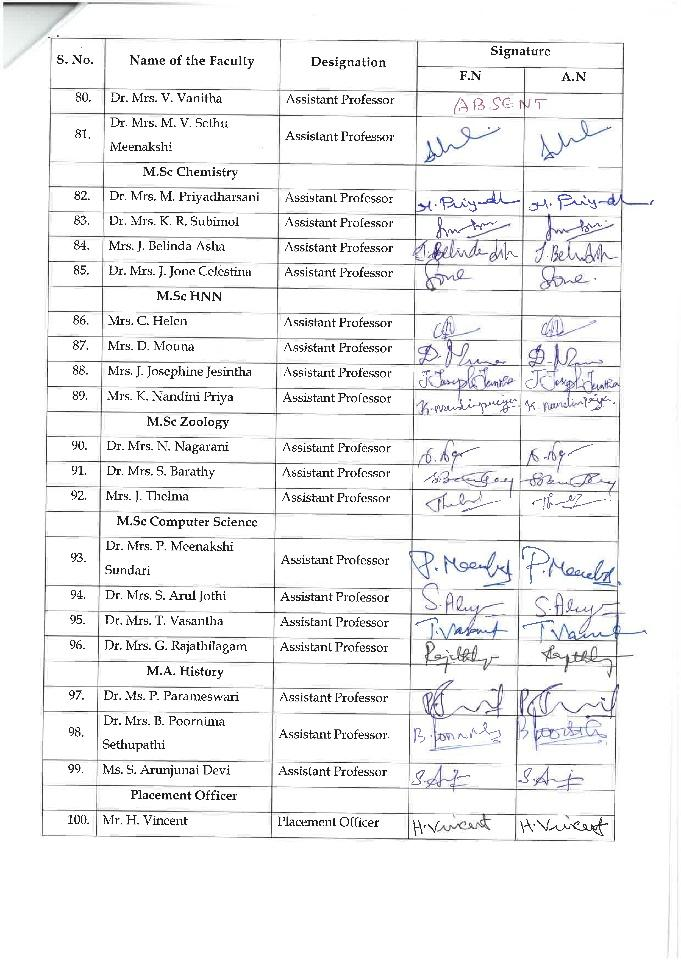 S. No. Name of the Faculty Designation Signature
F.N A.N
80. Dr. Mrs. V. Vanitha Assistant Professor ABSENT
81. Dr. Mrs. M. V. Sethu Meenakshi Assistant Professor
M.Sc Chemistry
82. Dr. Mrs. M. Priyadharsani Assistant Professor
83. Dr. Mrs. K. R. Subimol Assistant Professor
84. Mrs. J. Belinda Asha Assistant Professor
85. Dr. Mrs. J. Jone Celestina Assistant Professor Jone Jone
M.Sc HNN
86. Mrs. C. Helen Assistant Professor
87. Mrs. D. Mouna Assistant Professor
88. Mrs. J. Josephine Jesintha Assistant Professor
89. Mrs. K. Nandini Priya Assistant Professor K. nandinipriya K. nandinipriya
M.Sc Zoology
90. Dr. Mrs. N. Nagarani Assistant Professor
91. Dr. Mrs. S. Barathy Assistant Professor
92. Mrs. J. Thelma Assistant Professor
M.Sc Computer Science
93. Dr. Mrs. P. Meenakshi Sundari Assistant Professor
94. Dr. Mrs. S. Arul Jothi Assistant Professor
95. Dr. Mrs. T. Vasantha Assistant Professor
96. Dr. Mrs. G. Rajathilagam Assistant Professor
M.A. History
97. Dr. Ms. P. Parameswari Assistant Professor
98. Dr. Mrs. B. Poornima Sethupathi Assistant Professor
99. Ms. S. Arunjunai Devi Assistant Professor
Placement Officer
100. Mr. H. Vincent Placement Officer H. Vincent H. Vincent